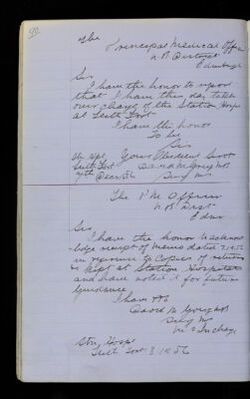 The
Principal Medical Officer
N B District
Edinburgh
Sir
I have the honor to report
that I have this day taken
over charge of the Station Hospl
at Leith Fort
I have the honor
To be
Sir
Your Obedient Servt
Leith Fort
David M
Surg
7th
The P M Officer
N B Dist
Edinr
Sir
I have the honor to acknow
ledge receipt of memo dated
in reference to Copies of returns
kept at Station Hospitals
and have noted it for future
Guidance
I have
David M
Surg
in Charge
Stn Hosp
Leith Fort